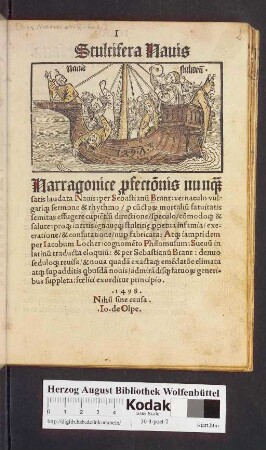 1
Stultifera Nauis
Narragonice ꝓfectōnis nunq̃
satis laudata Nauis: per Sebastianū Brant: vernaculo vul-
gariq; sermone & rhythmo / ꝓ cūctoꝝ mortaliū fatuitatis
semitas effugere cupiētiū directione / speculo / cōmodoq; &
salute: proq; inertis ignauęq; stulticię ꝑpetua infamia / exe-
cratione / & confutatione / nup fabricata: Atq; iampridem
per Iacobum Locher: cognomēto Philomusum: Sueuū: in
latinū traducta eloquiū: & per Sebastianū Brant: denuo
seduloq; reuisa: & noua quadā exactaq; emēdatōe elimata:
atq; supadditis qbusdā nouis / admirādisq; fatuoꝝ generi-
bus suppleta: fœlici exorditur principio.
.1498.
Nihil sine causa.
.Io. de Olpe.
Herzog August Bibliothek Wolfenbüttel
Kodak